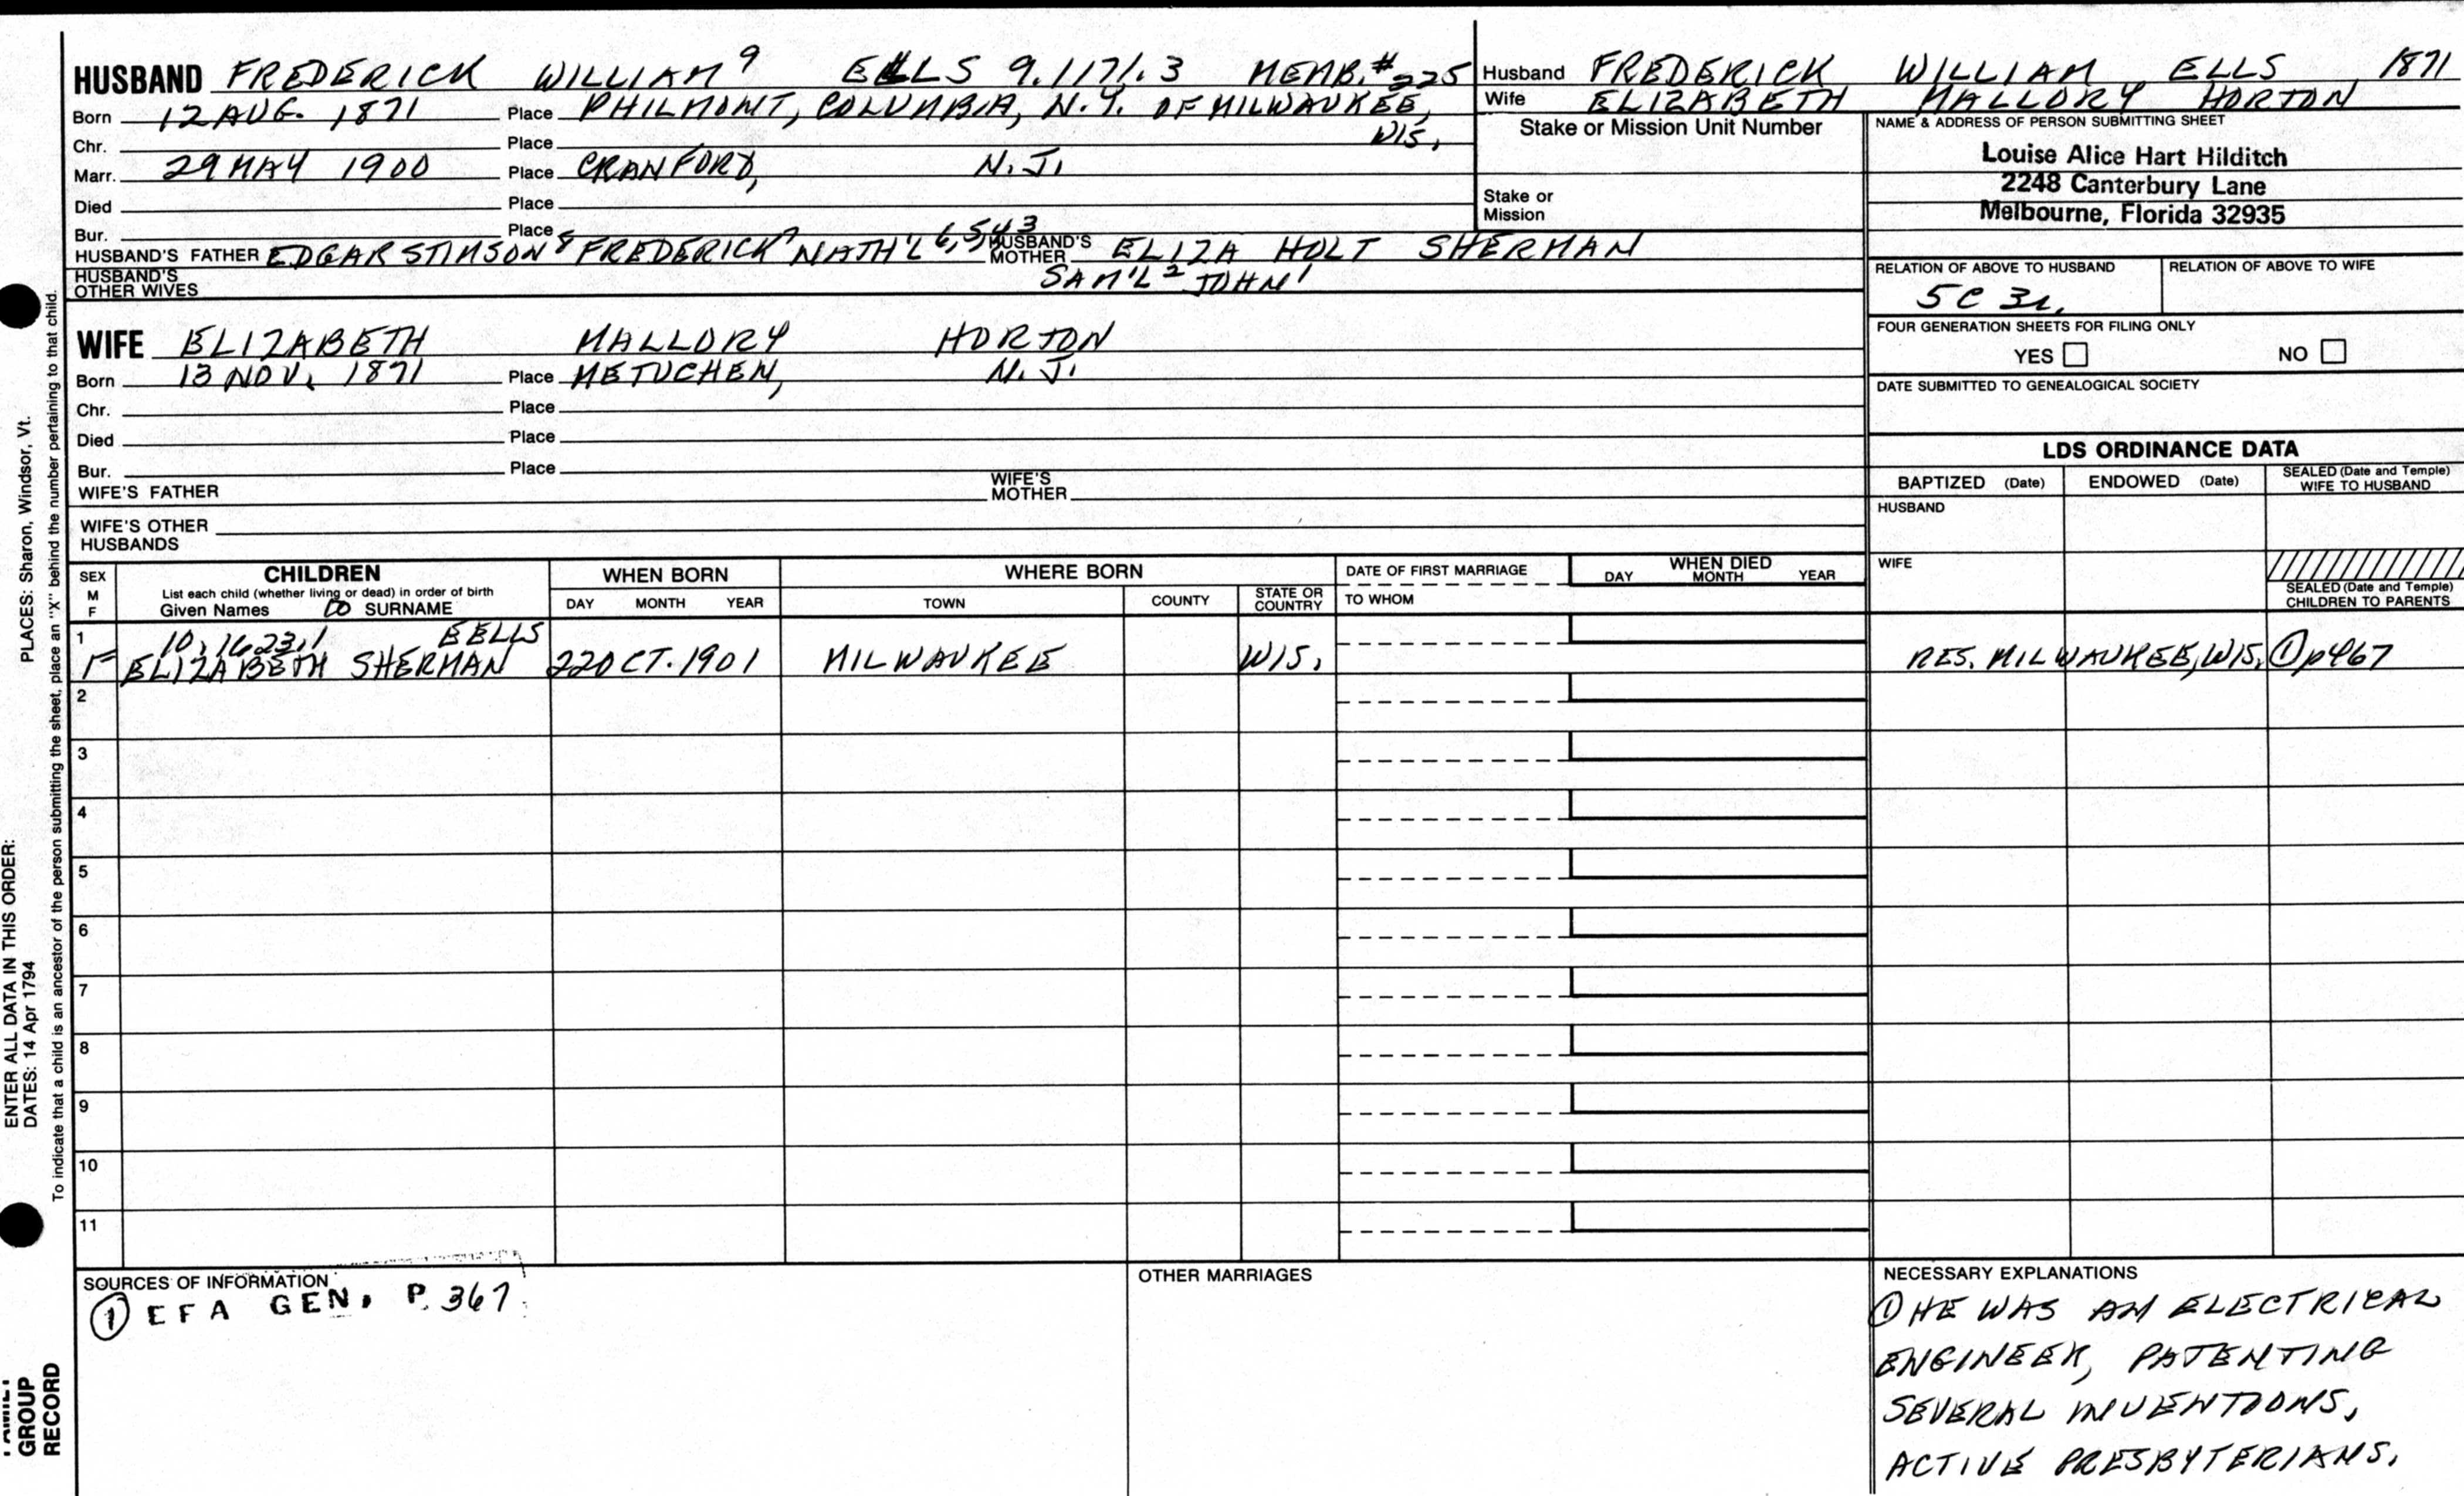 HUSBAND FREDERICK WILLIAM⁹ ELLS 9.1171.3 MEMB.# 225
Born 12 AUG. 1871 Place PHILMONT, COLUMBIA, N.Y. OF MILWAUKEE,
WIS,
Chr. Place
Marr. 29 MAY 1900 Place CRANFORD, N.J.
Died Place
Bur. Place
HUSBAND'S FATHER EDGAR STIMSON⁸ FREDERICK⁷ NATH'L 6,5,4,3 HUSBAND'S MOTHER ELIZA HOLT SHERMAN
SAM'L² JOHN¹
HUSBAND'S OTHER WIVES
WIFE ELIZABETH MALLORY HORTON
Born 13 NOV. 1871 Place METUCHEN, N.J.
Chr. Place
Died Place
Bur. Place
WIFE'S FATHER WIFE'S MOTHER
WIFE'S OTHER HUSBANDS
Husband FREDERICK WILLIAM ELLS 1871
Wife ELIZABETH MALLORY HORTON
Stake or Mission Unit Number
Stake or
Mission
NAME & ADDRESS OF PERSON SUBMITTING SHEET
Louise Alice Hart Hilditch
2248 Canterbury Lane
Melbourne, Florida 32935
RELATION OF ABOVE TO HUSBAND RELATION OF ABOVE TO WIFE
5C 3r.
FOUR GENERATION SHEETS FOR FILING ONLY
YES NO
DATE SUBMITTED TO GENEALOGICAL SOCIETY
LDS ORDINANCE DATA
BAPTIZED (Date) ENDOWED (Date) SEALED (Date and Temple) WIFE TO HUSBAND
HUSBAND
WIFE
SEALED (Date and Temple)
CHILDREN TO PARENTS
SEX M F
CHILDREN
List each child (whether living or dead) in order of birth
Given Names SURNAME
WHEN BORN
DAY MONTH YEAR
WHERE BORN
TOWN COUNTY STATE OR COUNTRY
DATE OF FIRST MARRIAGE
TO WHOM
WHEN DIED
DAY MONTH YEAR
1 10,1623,1 EELLS
F ELIZABETH SHERMAN 22 OCT. 1901 MILWAUKEE WIS, RES. MILWAUKEE, WIS. ① p467
2
3
4
5
6
7
8
9
10
11
SOURCES OF INFORMATION
① EFA GEN, P. 367
OTHER MARRIAGES
NECESSARY EXPLANATIONS
① HE WAS AN ELECTRICAL
ENGINEER, PATENTING
SEVERAL INVENTIONS,
ACTIVE PRESBYTERIANS.
PLACES: Sharon, Windsor, Vt.
To indicate that a child is an ancestor of the person submitting the sheet, place an "X" behind the number pertaining to that child.
ENTER ALL DATA IN THIS ORDER:
DATES: 14 Apr 1794
GROUP
RECORD